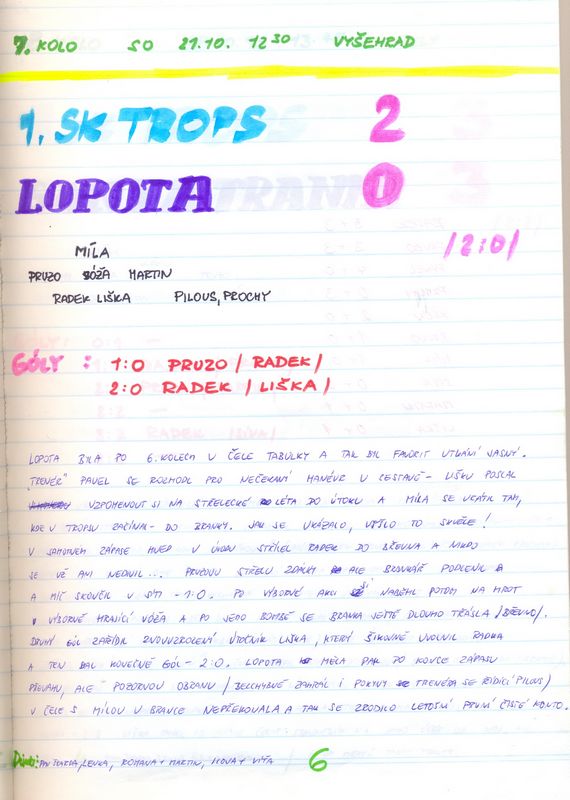 7. KOLO SO 21.10. 12 30 VYŠEHRAD
1. SK TROPS 2
LOPOTA 0
/2:0/
MÍLA
PRUZO VÓŽA MARTIN
RADEK LIŠKA PILOUS, PROCHY
GÓLY: 1:0 PRUZO / RADEK /
2:0 RADEK / LIŠKA /
LOPOTA BYLA PO 6. KOLECH V ČELE TABULKY A TAK BYL FAVORIT UTKÁNÍ JASNÝ.
TRENÉR" PAVEL SE ROZHODL PRO NEČEKANÝ MANÉVR V SESTAVĚ - LIŠKU POSLAL
VZPOMENOUT SI NA STŘELECKÉ LÉTA DO ÚTOKU A MÍLA SE VRÁTIL TAM,
KDE V TROPSU ZAČÍNAL - DO BRANKY. JAK SE UKÁZALO, VYŠLO TO SKVĚLE!
V SAMOTNÉM ZÁPASE HNED V ÚVODU STŘÍLEL RADEK DO BŘEVNA A NIKDO
SE UŽ ANI NEDIVIL... PRUZOVU STŘELU ZDÁLKY ALE BRANKÁŘ PODCENIL
A MÍČ SKONČIL V SÍTI - 1:0. PO VÝBORNÉ AKCI SI NABĚHL POTOM NA HROT
VÝBORNĚ HRAJÍCÍ VÓŽA A PO JEHO BOMBĚ SE BRANKA JEŠTĚ DLOUHO TŘÁSLA /BŘEVNO/.
DRUHÝ GÓL ZAŘÍDIL ZNOVUZROZENÝ ÚTOČNÍK LIŠKA, KTERÝ ŠIKOVNĚ UVOLNIL RADKA
A TEN DAL KONEČNÝ GÓL - 2:0. LOPOTA MĚLA PAK DO KONCE ZÁPASU
PŘEVAHU, ALE POZORNOU OBRANU / BEZCHYBNĚ ZAHRÁL I POKYNY TRENÉRA SE ŘÍDÍCÍ PILOUS /
V ČELE S MÍLOU V BRANCE NEPŘEKONALA A TAK SE ZRODILO LETOŠNÍ PRVNÍ ČISTÉ KONTO.
LENKA, ROMANA + MARTIN, + VÍŤA 6